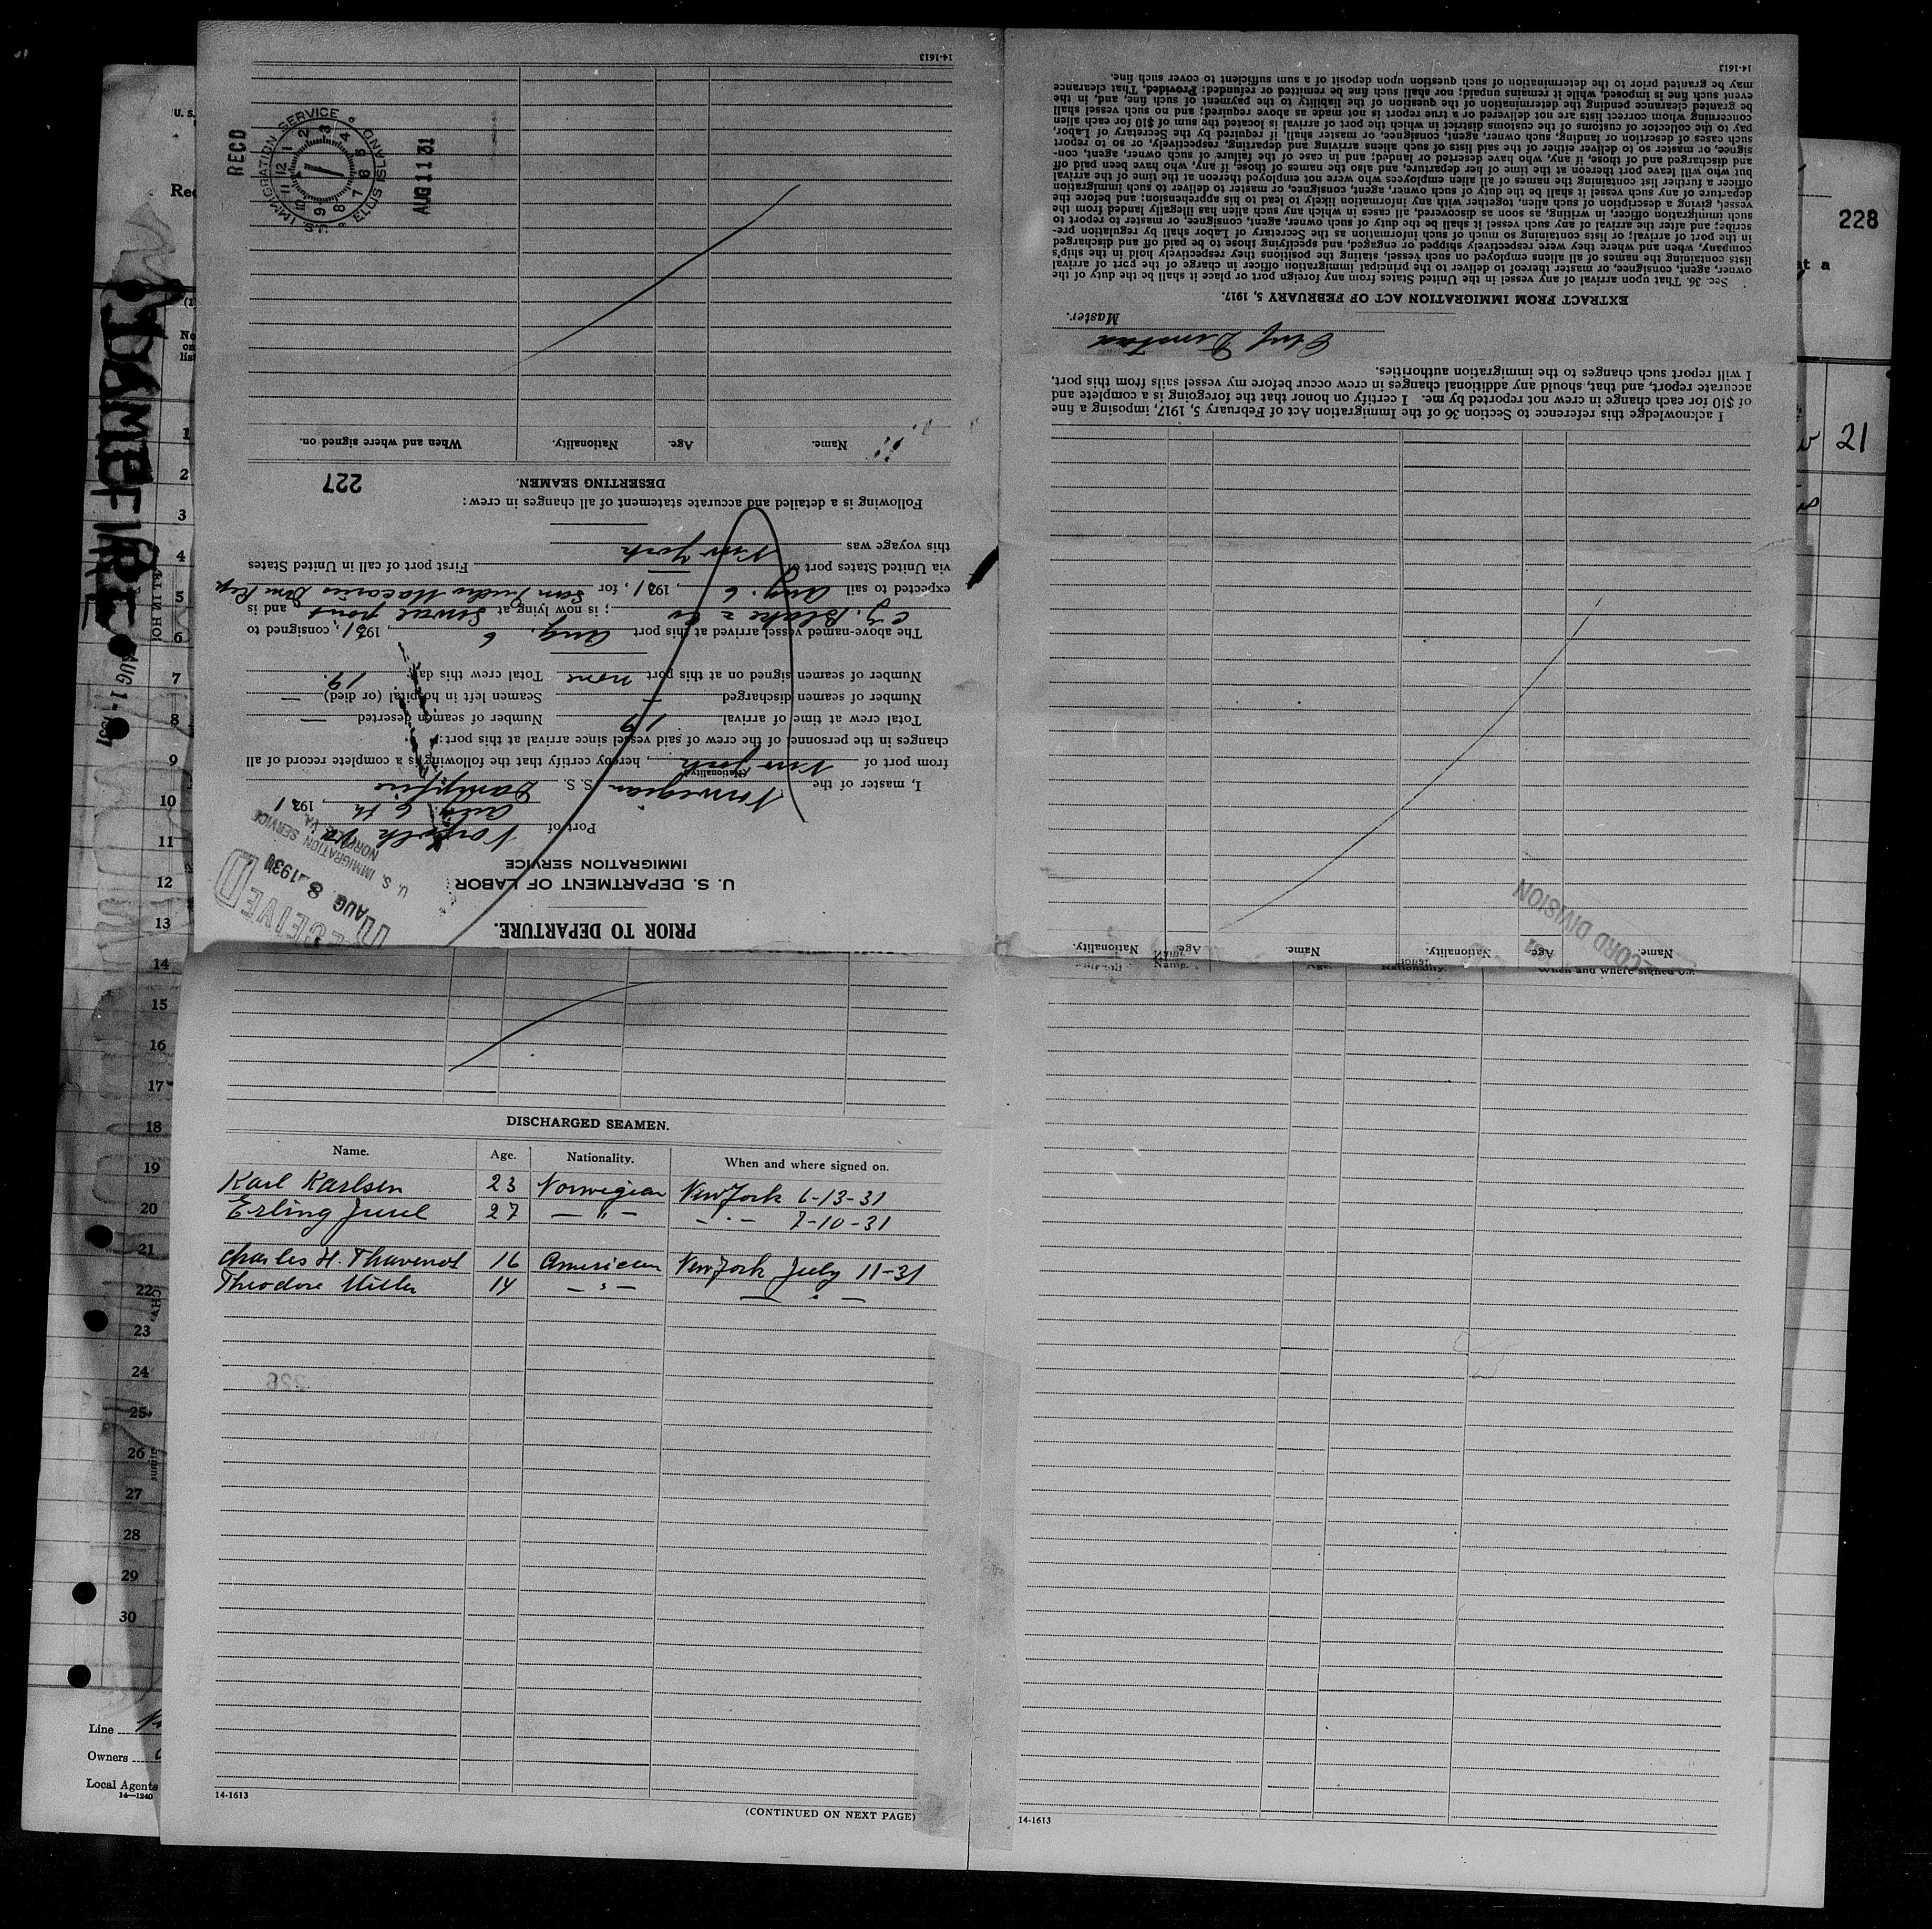 14-1613
PRIOR TO DEPARTURE.
U. S. DEPARTMENT OF LABOR
IMMIGRATION SERVICE
RECEIVED
AUG 8 1931
U. S. IMMIGRATION SERVICE
NORFOLK, VA.
Port of Norfolk Va
Aug. 6 th, 1931
I, master of the Norwegian S. S. Dampfire
(Nationality)
from port of New York, hereby certify that the following is a complete record of all
changes in the personnel of the crew of said vessel since arrival at this port:
Total crew at time of arrival 19 Number of seamen deserted —
Number of seamen discharged — Seamen left in hospital (or died) —
Number of seamen signed on at this port none Total crew this day 19.
The above-named vessel arrived at this port Aug. 6, 1931, consigned to
C. J. Blake & Co; is now lying at Sewal point and is
expected to sail Aug. 6, 1931, for San Pedro Macoris Dom Rep
via United States port of — First port of call in United States
this voyage was New York
Following is a detailed and accurate statement of all changes in crew:
DESERTING SEAMEN.
227
Name. Age. Nationality. When and where signed on.
RECD
U.S. IMMIGRATION SERVICE ELLIS ISLAND
1 2 3 4 5 6 7 8 9 10 11 12
AUG 11 31
14-1613
Name. Age. Nationality. Name Age. Nationality.
RECORD DIVISION
I acknowledge this reference to Section 36 of the Immigration Act of February 5, 1917, imposing a fine
of $10 for each change in crew not reported by me. I certify on honor that the foregoing is a complete and
accurate report, and that, should any additional changes in crew occur before my vessel sails from this port,
I will report such changes to the immigration authorities.
Master.
EXTRACT FROM IMMIGRATION ACT OF FEBRUARY 5, 1917.
Sec. 36. That upon arrival of any vessel in the United States from any foreign port or place it shall be the duty of the
owner, agent, consignee, or master thereof to deliver to the principal immigration officer in charge of the port of arrival
lists containing the names of all aliens employed on such vessel, stating the positions they respectively hold in the ship's
company, when and where they were respectively shipped or engaged, and specifying those to be paid off and discharged
in the port of arrival; or lists containing so much of such information as the Secretary of Labor shall by regulation pre-
scribe; and after the arrival of any such vessel it shall be the duty of such owner, agent, consignee, or master to report to
such immigration officer, in writing, as soon as discovered, all cases in which any such alien has illegally landed from the
vessel, giving a description of such alien, together with any information likely to lead to his apprehension; and before the
departure of any such vessel it shall be the duty of such owner, agent, consignee, or master to deliver to such immigration
officer a further list containing the names of all alien employees who were not employed thereon at the time of the arrival
but who will leave port thereon at the time of her departure, and also the names of those, if any, who have been paid off
and discharged and of those, if any, who have deserted or landed; and in case of the failure of such owner, agent, con-
signee, or master so to deliver either of the said lists of such aliens arriving and departing, respectively, or so to report
such cases of desertion or landing, such owner, agent, consignee, or master shall, if required by the Secretary of Labor,
pay to the collector of customs of the customs district in which the port of arrival is located the sum of $10 for each alien
concerning whom correct lists are not delivered or a true report is not made as above required; and no such vessel shall
be granted clearance pending the determination of the question of the liability to the payment of such fine, and, in the
event such fine is imposed, while it remains unpaid; nor shall such fine be remitted or refunded: Provided, That clearance
may be granted prior to the determination of such question upon deposit of a sum sufficient to cover such fine.
14-1613
Name. Age. Nationality. When and where signed on.
DISCHARGED SEAMEN.
Name. Age. Nationality. When and where signed on.
Karl Karlsen 23 Norwegian New York 6-13-31
Erling Jurel 27 — " — — " — 7-10-31
Charles H. Thavenot 16 American New York July 11-31
Theodore Miller 14 — " — — " —
228
14-1613
(CONTINUED ON NEXT PAGE)
14-1613
U. S.
Rec
(1)
No
on
list
DAMPFIRE
AUG 1 - 1931
1
2
3
4
5
6
7
8
9
10
11
12
13
14
15
16
17
18
19
20
21
22
23
24
25
26
27
28
29
30
Line
Owners
Local Agents
14—1240
228
at a
21